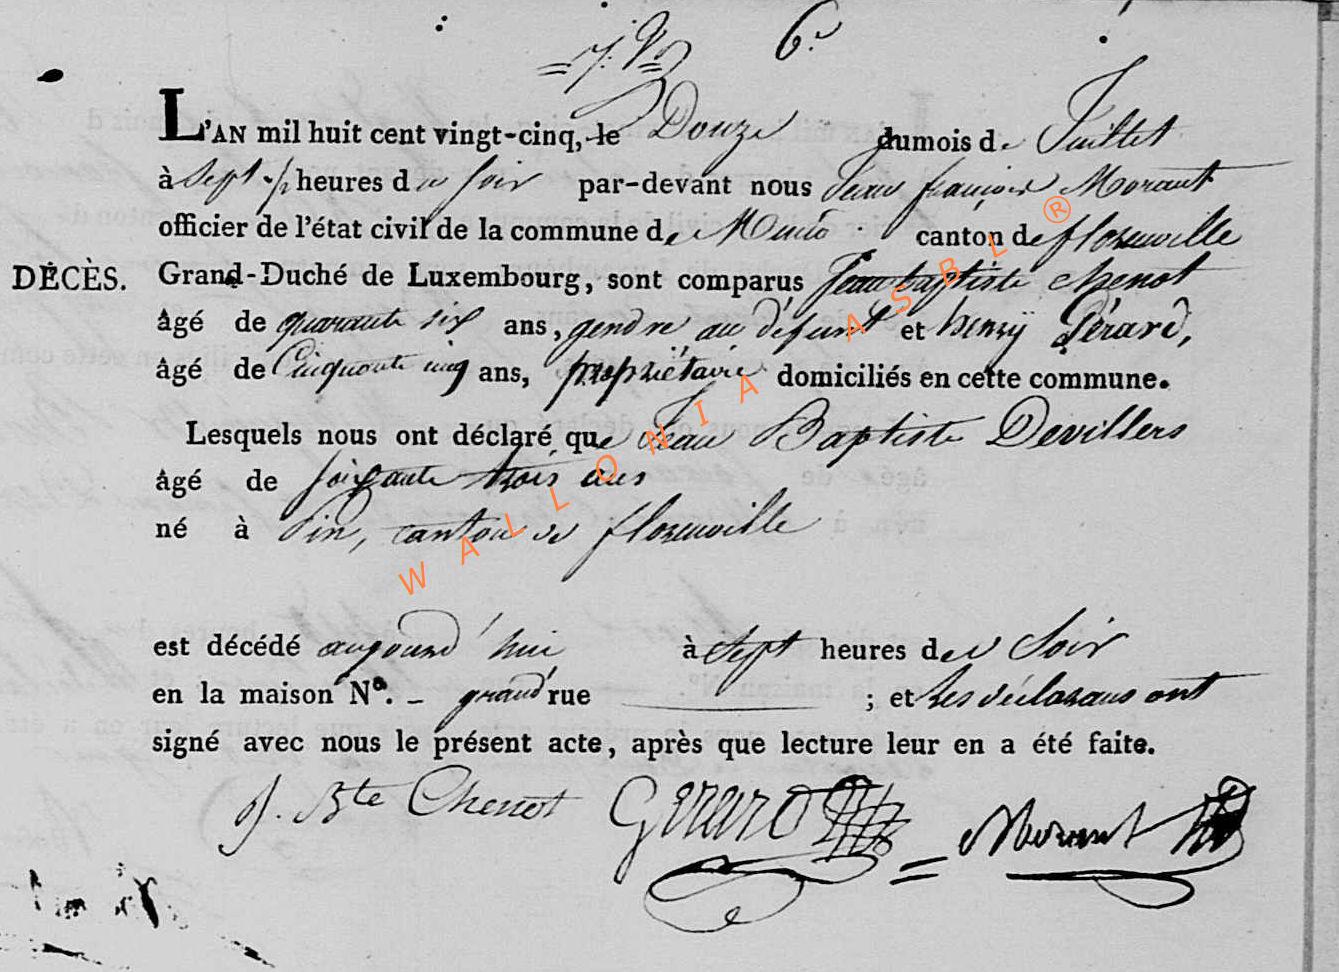 6.e
L'AN mil huit cent vingt-cinq, le Douze dumois de Juillet
à sept ½ heures du soir par-devant nous Jean françois Morant
officier de l'état civil de la commune de Muno canton de florenville
DÉCÈS. Grand-Duché de Luxembourg, sont comparus Jean baptiste chenot
âgé de quarante six ans, gendre au défunt et henry Gérard,
âgé de Cinquante cinq ans, propriétaire domiciliés en cette commune.
Lesquels nous ont déclaré que Jean Baptiste Devillers
âgé de soixante trois ans
né à Pin, canton de florenville
est décédé aujourd'hui à sept heures du Soir
en la maison No. - grand'rue ; et les déclarans ont
signé avec nous le présent acte, après que lecture leur en a été faite.
J. Bte Chenot Gerard Morant
WALLONIA ASBL ®